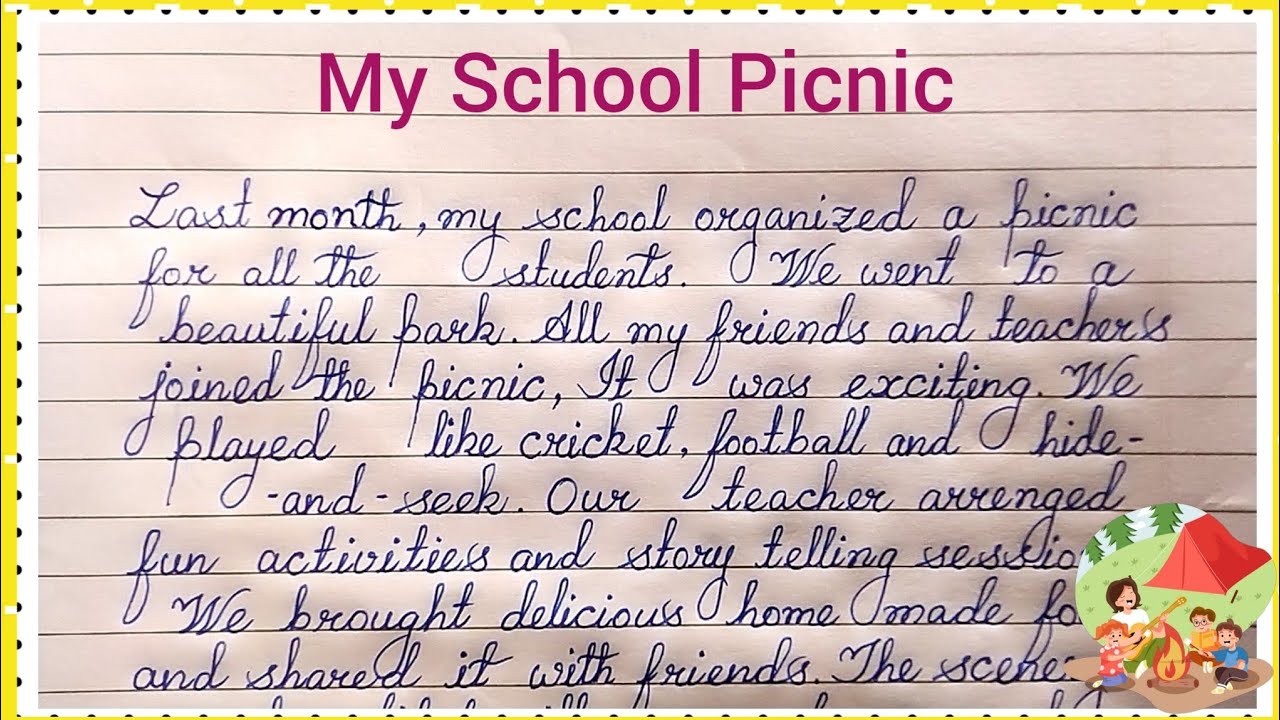 My School Picnic
Last month, my school organized a picnic
for all the students. We went to a
beautiful park. All my friends and teachers
joined the picnic, It was exciting. We
played like cricket, football and hide-
-and-seek. Our teacher arrenged
fun activities and story telling
We brought delicious home made
and shared it with friends. The